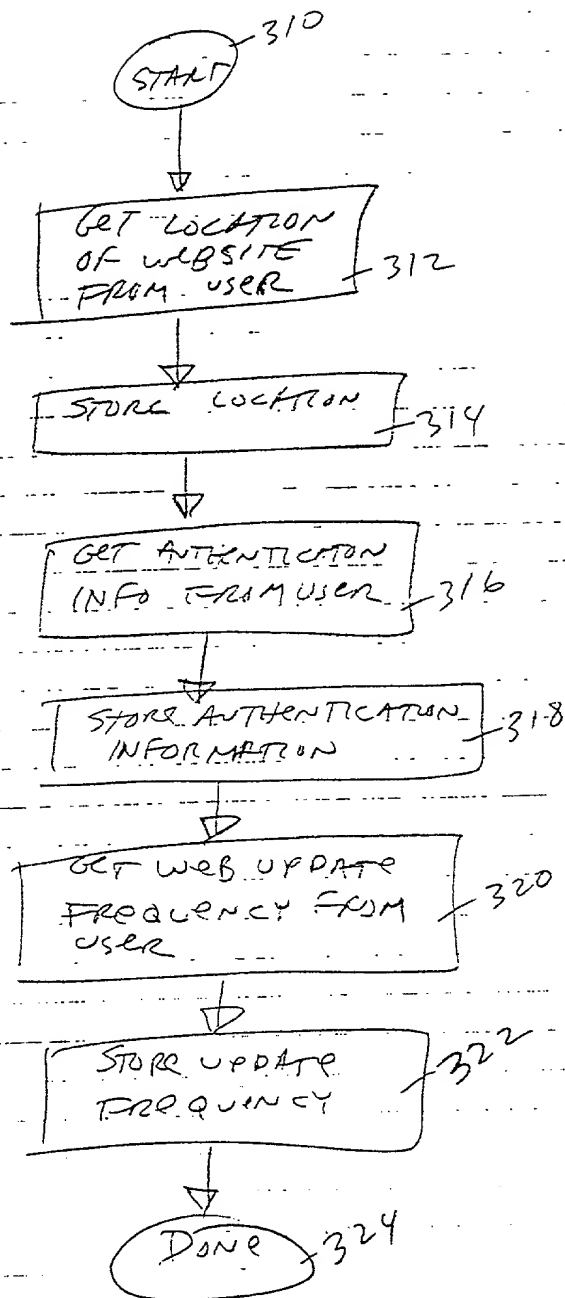 START 310
GET LOCATION
OF WEBSITE
FROM USER 312
STORE LOCATION
314
GET AUTHENTICATON
INFO FROM USER 316
STORE AUTHENTICATION
INFORMATION 318
GET WEB UPDATE
FREQUENCY FROM
USER 320
STORE UPDATE
FREQUENCY 322
DONE 324